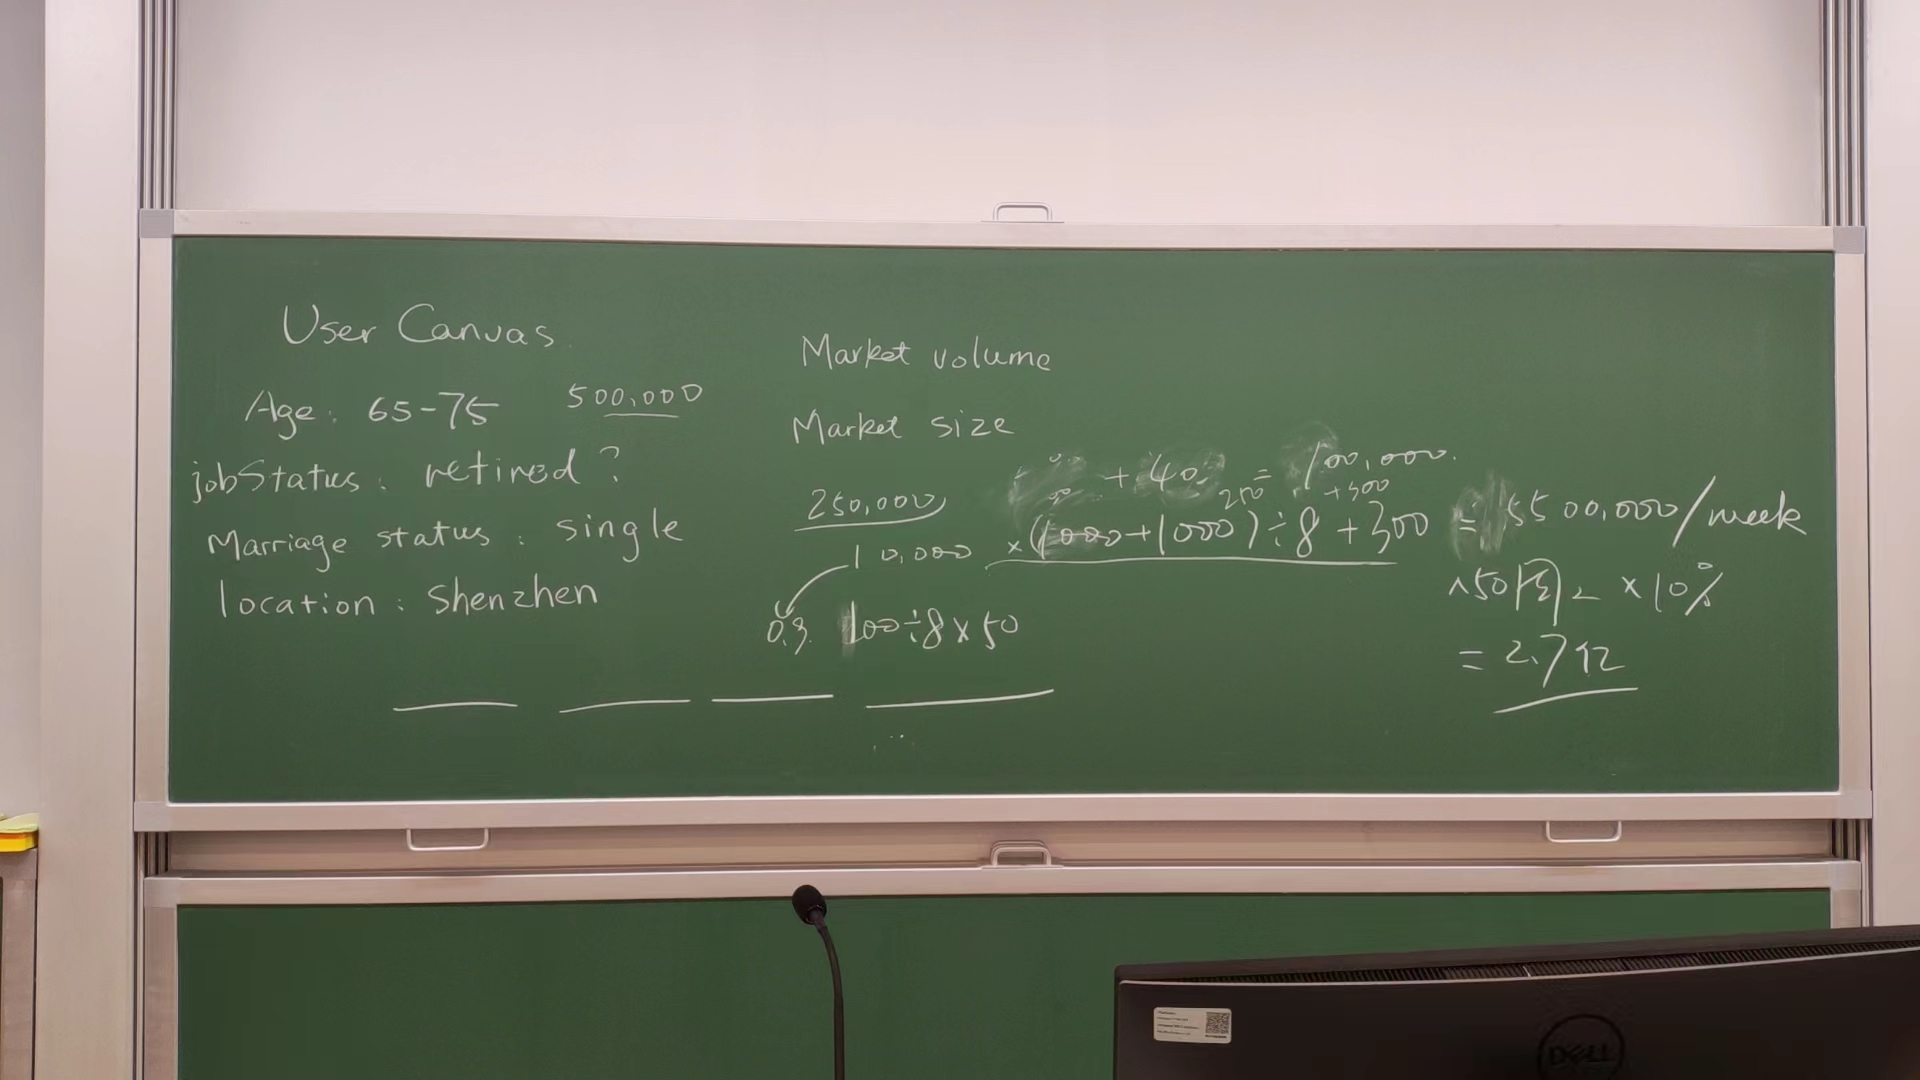 User Canvas
Age: 65-75 500,000
jobStatus: retired?
Marriage status: single
location: Shenzhen
Market volume
Market size
+40 = 100,000.
250 +300
250,000 ×(1000+1000)÷8+300 = 5500,000/week
10,000
×50周 ×10%
0.3. 100÷8×50
= 2.7亿
DELL